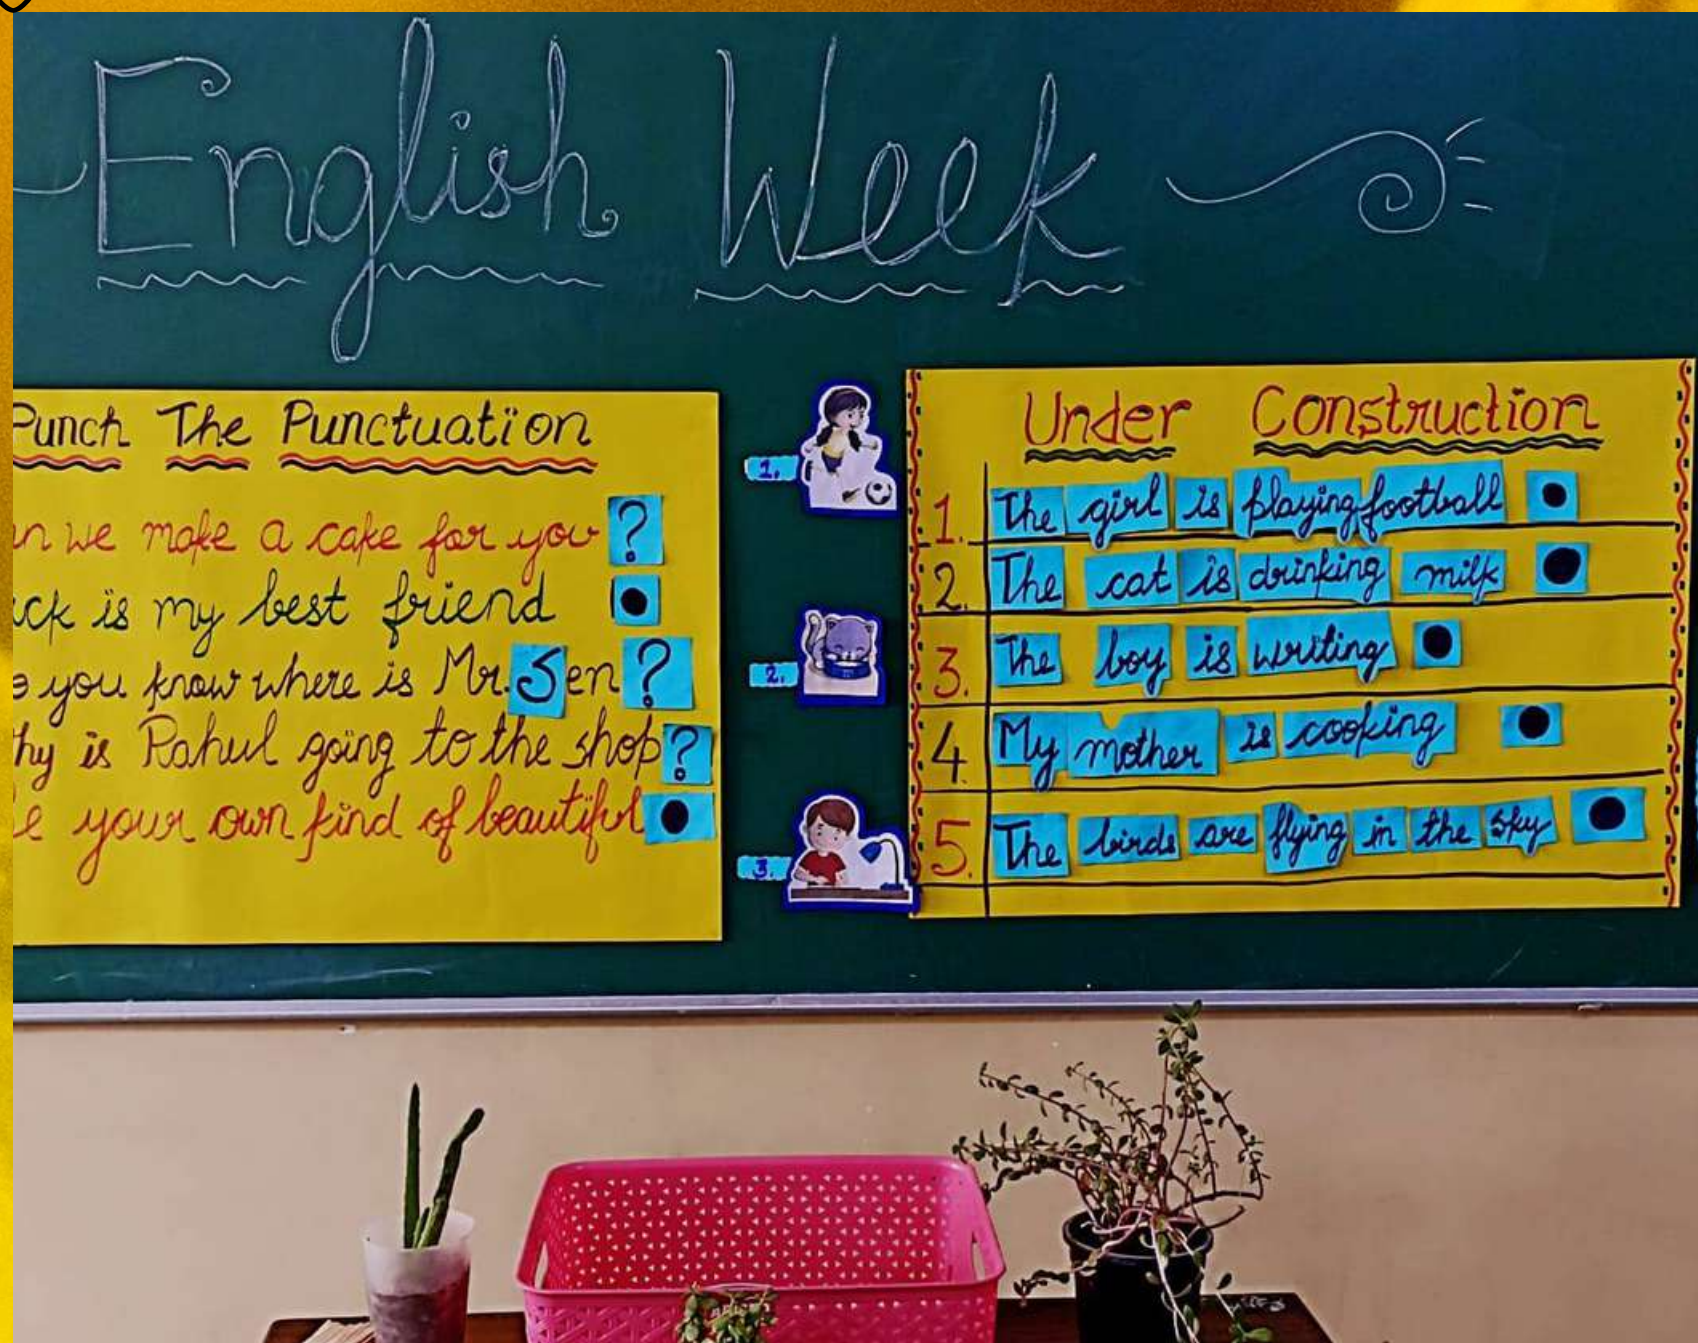 English Week
Punch The Punctuation
we make a cake for you ?
is my best friend .
you know where is Mr. Sen ?
is Rahul going to the shop ?
your own kind of beautiful .
1.
2.
3.
Under Construction
1. The girl is playing football .
2. The cat is drinking milk .
3. The boy is writing .
4. My mother is cooking .
5. The birds are flying in the sky .